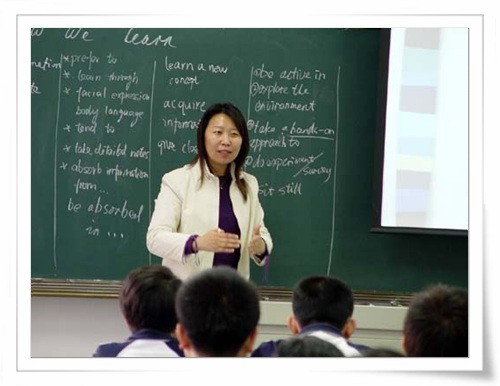 We learn
* prefer to
* learn through
* facial expression
body language
* tend to
* take detailed notes
* absorb information
from...
be absorbed
in ...
learn a new
concept
acquire
give
be active in
explore the
environment
take a hands-on
approach to
do experiment
/survey
sit still